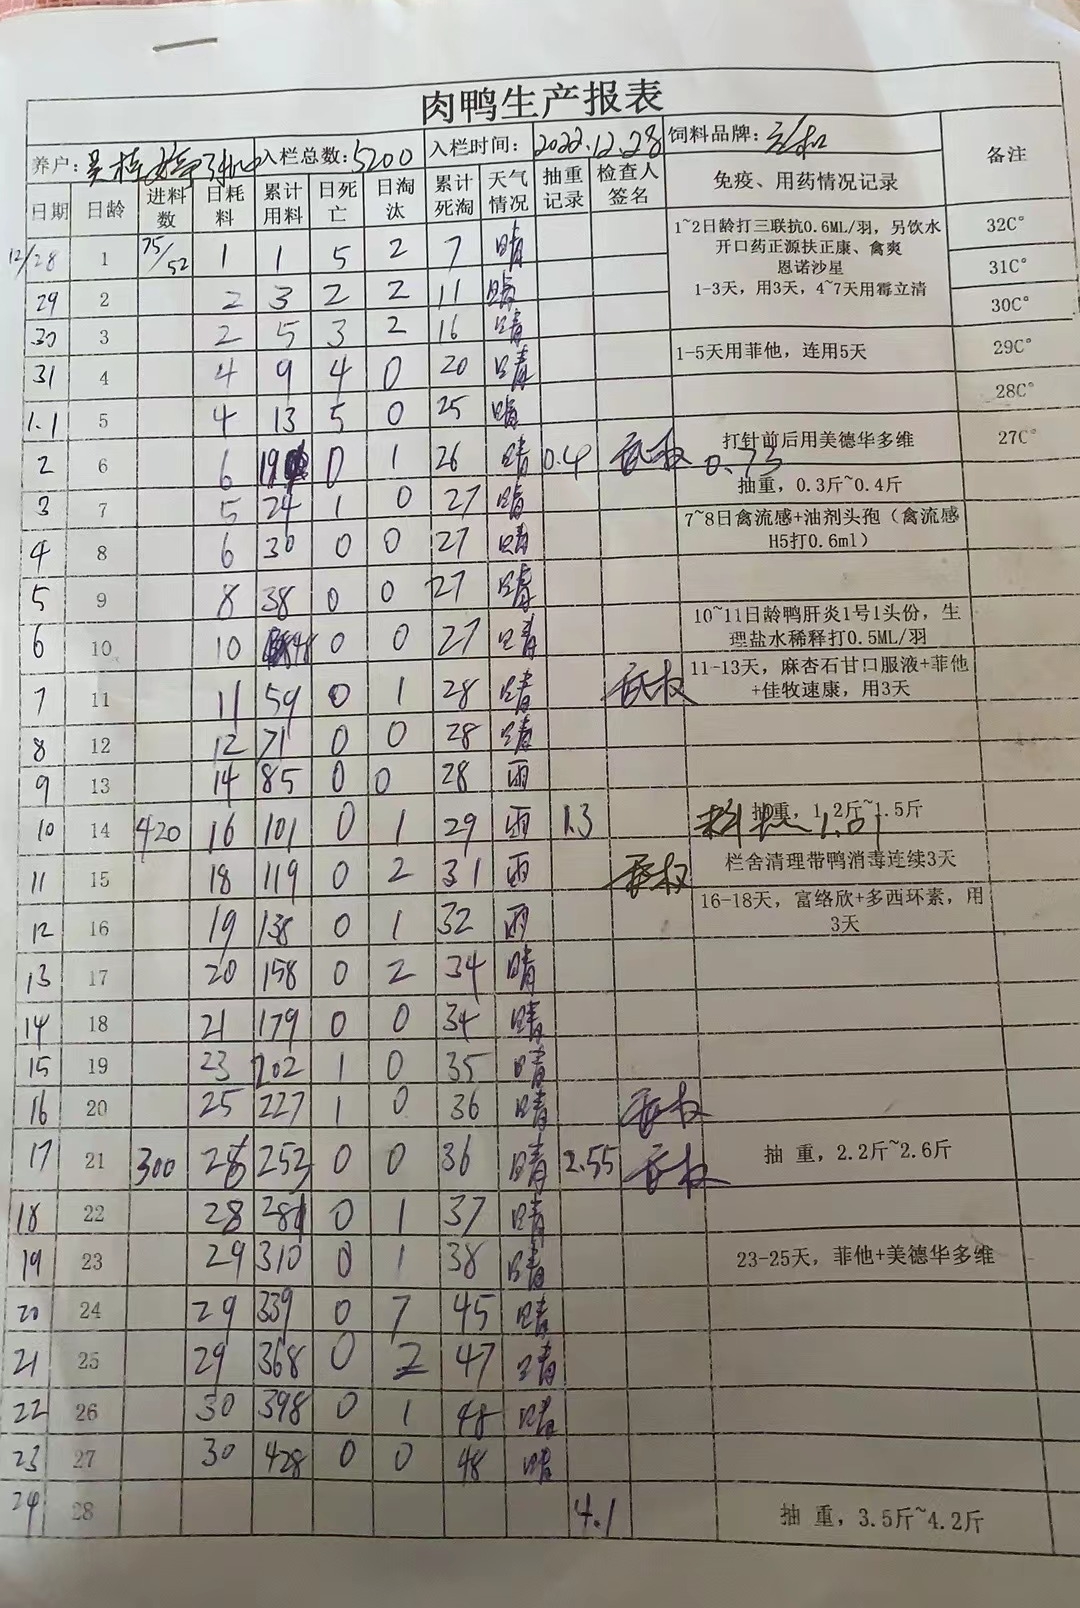 肉鸭生产报表
养户: 入栏总数:5200 入栏时间: 2022.12.28 饲料品牌: 备注
日期 日龄 进料数 日耗料 累计用料 日死亡 日淘汰 累计死淘 天气情况 抽重记录 检查人签名 免疫、用药情况记录
12/28 1 75/52 1 1 5 2 7 晴 1~2日龄打三联抗0.6ML/羽，另饮水开口药正源扶正康、禽爽恩诺沙星 32C°
31C°
29 2 2 3 2 2 11 晴 1-3天，用3天，4~7天用霉立清 30C°
30 3 2 5 3 2 16 晴
31 4 4 9 4 0 20 晴 1-5天用菲他，连用5天 29C°
1.1 5 4 13 5 0 25 晴 28C°
2 6 6 19 0 1 26 晴 0.4 0.73 打针前后用美德华多维 27C°
3 7 5 24 1 0 27 晴 抽重，0.3斤~0.4斤
4 8 6 30 0 0 27 晴 7~8日禽流感+油剂头孢（禽流感H5打0.6ml）
5 9 8 38 0 0 27 晴
6 10 10 48 0 0 27 晴 10~11日龄鸭肝炎1号1头份，生理盐水稀释打0.5ML/羽
7 11 11 59 0 1 28 晴 11-13天，麻杏石甘口服液+菲他+佳牧速康，用3天
8 12 12 71 0 0 28 晴
9 13 14 85 0 0 28 雨
10 14 420 16 101 0 1 29 雨 1.3 抽重，1.2斤~1.5斤
11 15 18 119 0 2 31 雨 栏舍清理带鸭消毒连续3天
12 16 19 138 0 1 32 雨 16-18天，富络欣+多西环素，用3天
13 17 20 158 0 2 34 晴
14 18 21 179 0 0 34 晴
15 19 23 202 1 0 35 晴
16 20 25 227 1 0 36 晴
17 21 300 26 253 0 0 36 晴 2.55 抽 重，2.2斤~2.6斤
18 22 28 281 0 1 37 晴
19 23 29 310 0 1 38 晴 23-25天，菲他+美德华多维
20 24 29 339 0 7 45 晴
21 25 29 368 0 2 47 晴
22 26 30 398 0 1 48 晴
23 27 30 428 0 0 48 晴
24 28 4.1 抽 重，3.5斤~4.2斤